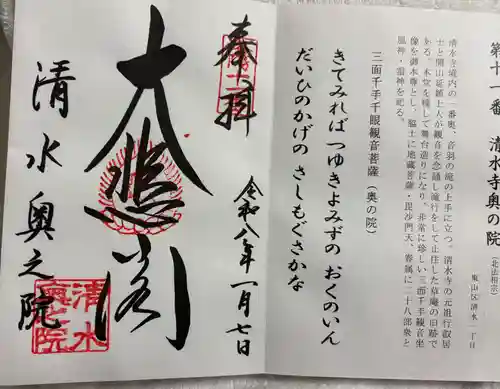 第十一番 清水寺奥の院 (北法相宗)
東山区清水一丁目
清水寺境内の一番奥、音羽の滝の上手に立つ。清水寺の元祖行叡居
士と開山延鎮上人が観音を念誦し滝行をして山住した草庵の旧跡で
ある。本堂を模して舞台造りになり、非常に珍しい三面千手観音坐
像を御本尊とし、脇士に地蔵菩薩・毘沙門天、眷属に二十八部衆と
風神・雷神を祀る。
三面千手千眼観音菩薩(奥の院)
きてみれば つゆきよみずの おくのいん
だいひのかげの さしもぐさかな
奉拝
令和八年一月七日
大悲閣
清水奥之院
清水
奥之院